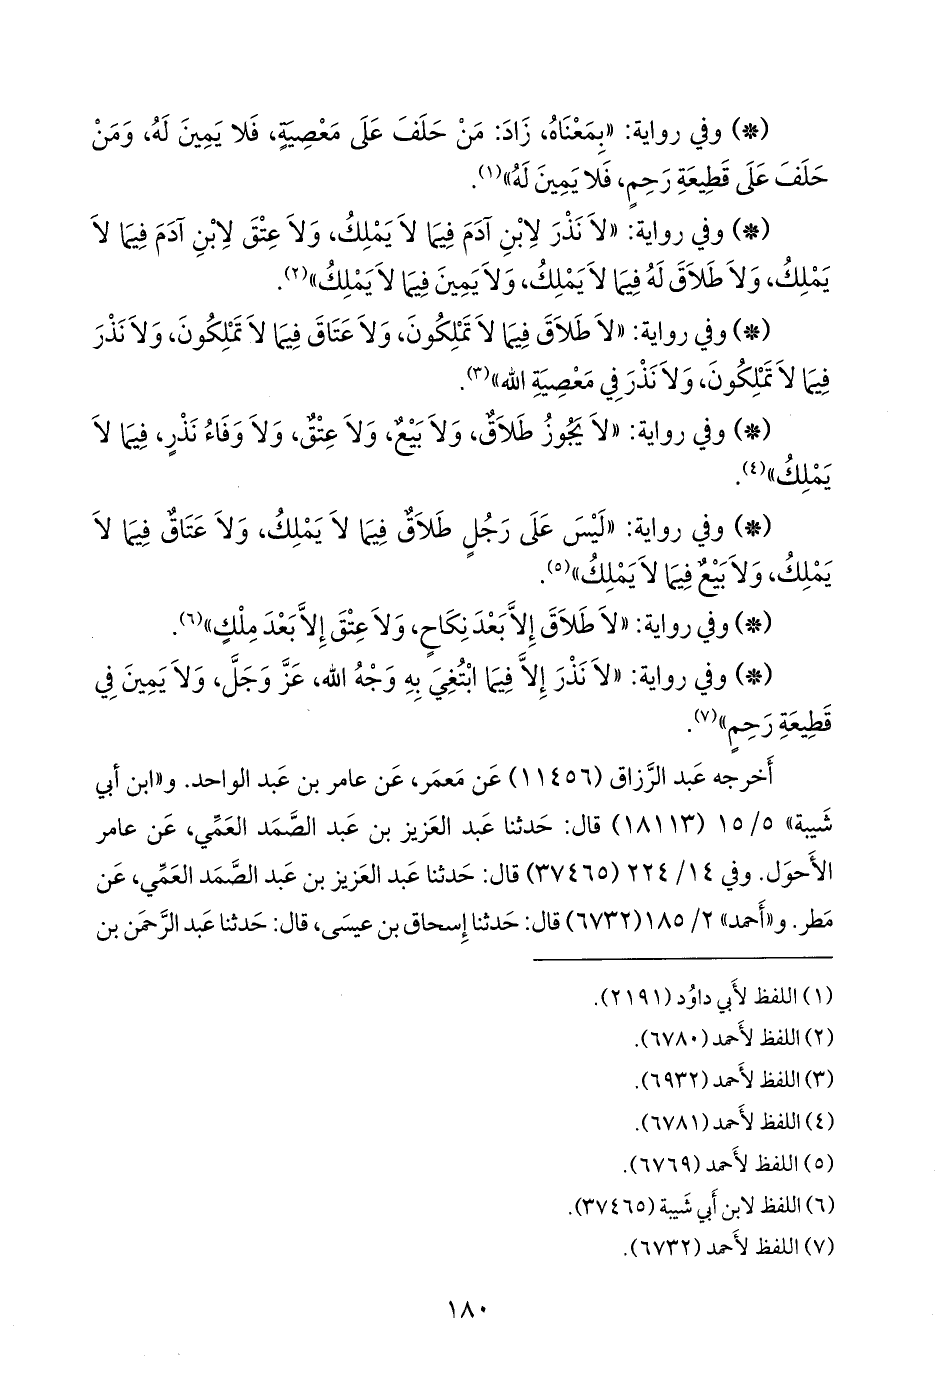 (*) وفي رواية: «بِمَعْنَاهُ، زَادَ: مَنْ حَلَفَ عَلَى مَعْصِيَةٍ، فَلا يَمِينَ لَهُ، وَمَنْ
حَلَفَ عَلَى قَطِيعَةِ رَحِمٍ، فَلا يَمِينَ لَهُ»(١).
(*) وفي رواية: «لاَ نَذْرَ لِابْنِ آدَمَ فِيمَا لاَ يَمْلِكُ، وَلاَ عِتْقَ لِابْنِ آدَمَ فِيمَا لاَ
يَمْلِكُ، وَلاَ طَلاَقَ لَهُ فِيمَا لاَ يَمْلِكُ، وَلاَ يَمِينَ فِيمَا لاَ يَمْلِكُ»(٢).
(*) وفي رواية: «لاَ طَلاَقَ فِيمَا لاَ تَمْلِكُونَ، وَلاَ عَتَاقَ فِيمَا لاَ تَمْلِكُونَ، وَلاَ نَذْرَ
فِيمَا لاَ تَمْلِكُونَ، وَلاَ نَذْرَ فِي مَعْصِيَةِ الله»(٣).
(*) وفي رواية: «لاَ يَجُوزُ طَلاَقٌ، وَلاَ بَيْعٌ، وَلاَ عِتْقٌ، وَلاَ وَفَاءُ نَذْرٍ، فِيمَا لاَ
يَمْلِكُ»(٤).
(*) وفي رواية: «لَيْسَ عَلَى رَجُلٍ طَلاَقٌ فِيمَا لاَ يَمْلِكُ، وَلاَ عَتَاقٌ فِيمَا لاَ
يَمْلِكُ، وَلاَ بَيْعٌ فِيمَا لاَ يَمْلِكُ»(٥).
(*) وفي رواية: «لاَ طَلاَقَ إِلاَّ بَعْدَ نِكَاحٍ، وَلاَ عِتْقَ إِلاَّ بَعْدَ مِلْكٍ»(٦).
(*) وفي رواية: «لاَ نَذْرَ إِلاَّ فِيمَا ابْتُغِيَ بِهِ وَجْهُ الله، عَزَّ وَجَلَّ، وَلاَ يَمِينَ فِي
قَطِيعَةِ رَحِمٍ»(٧).
أَخرجه عَبد الرَّزاق (١١٤٥٦) عَن مَعمَر، عَن عامر بن عَبد الواحد. و«ابن أبي
شَيبة» ٥/ ١٥ (١٨١١٣) قال: حَدثنا عَبد العَزيز بن عَبد الصَّمَد العَمِّي، عَن عامر
الأَحوَل. وفي ١٤/ ٢٢٤ (٣٧٤٦٥) قال: حَدثنا عَبد العَزيز بن عَبد الصَّمَد العَمِّي، عَن
مَطر. و«أَحمد» ٢/ ١٨٥(٦٧٣٢) قال: حَدثنا إِسحاق بن عيسَى، قال: حَدثنا عَبد الرَّحمَن بن
(١) اللفظ لأَبي داوُد (٢١٩١).
(٢) اللفظ لأَحمد (٦٧٨٠).
(٣) اللفظ لأَحمد (٦٩٣٢).
(٤) اللفظ لأَحمد (٦٧٨١).
(٥) اللفظ لأَحمد (٦٧٦٩).
(٦) اللفظ لابن أَبي شَيبة (٣٧٤٦٥).
(٧) اللفظ لأَحمد (٦٧٣٢).
١٨٠